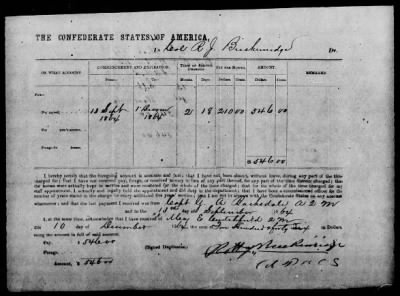 THE CONFEDERATE STATES OF AMERICA,
To Col R J Breckinridge Dr.
ON WHAT ACCOUNT. COMMENCEMENT AND EXPIRATION. TERM OF SERVICE CHARGED. PAY PER MONTH. AMOUNT. REMARKS.
From— To— Months. Days. Dolls. Cents. Dollars. Cents.
PAY—
For myself, 13 Sept 1 Decem 2 18 210 00 546 00
1864 1864
For years' service,
FORAGE—
For horses,
$546 00
I hereby certify that the foregoing account is accurate and just; that I have not been absent, without leave, during any part of the time
charged for; that I have not received pay, forage, or received money in lieu of any part thereof, for any part of the time therein charged; that
the horses were actually kept in service and were mustered for the whole of the time charged; that for the whole of the time charged for
my appointment, I actually and legally held the appointment and did duty in the department; that I have been a commissioned officer for
the number of years stated in the charge for every additional five years' service; that I am not in arrears with the Confederate States on any account
whatsoever; and that the last payment I received was from Capt A 2 M
and to the day of September 1864
I, at the same time, acknowledge that I have received of Maj
this 10 day of December 1864 Five Hundred forty Six Dollars,
being the amount in full of said account.
Pay, 546 00
Forage, (Signed Duplicate)
Amount, $ 546 00 Breckinridge
Col P A C S